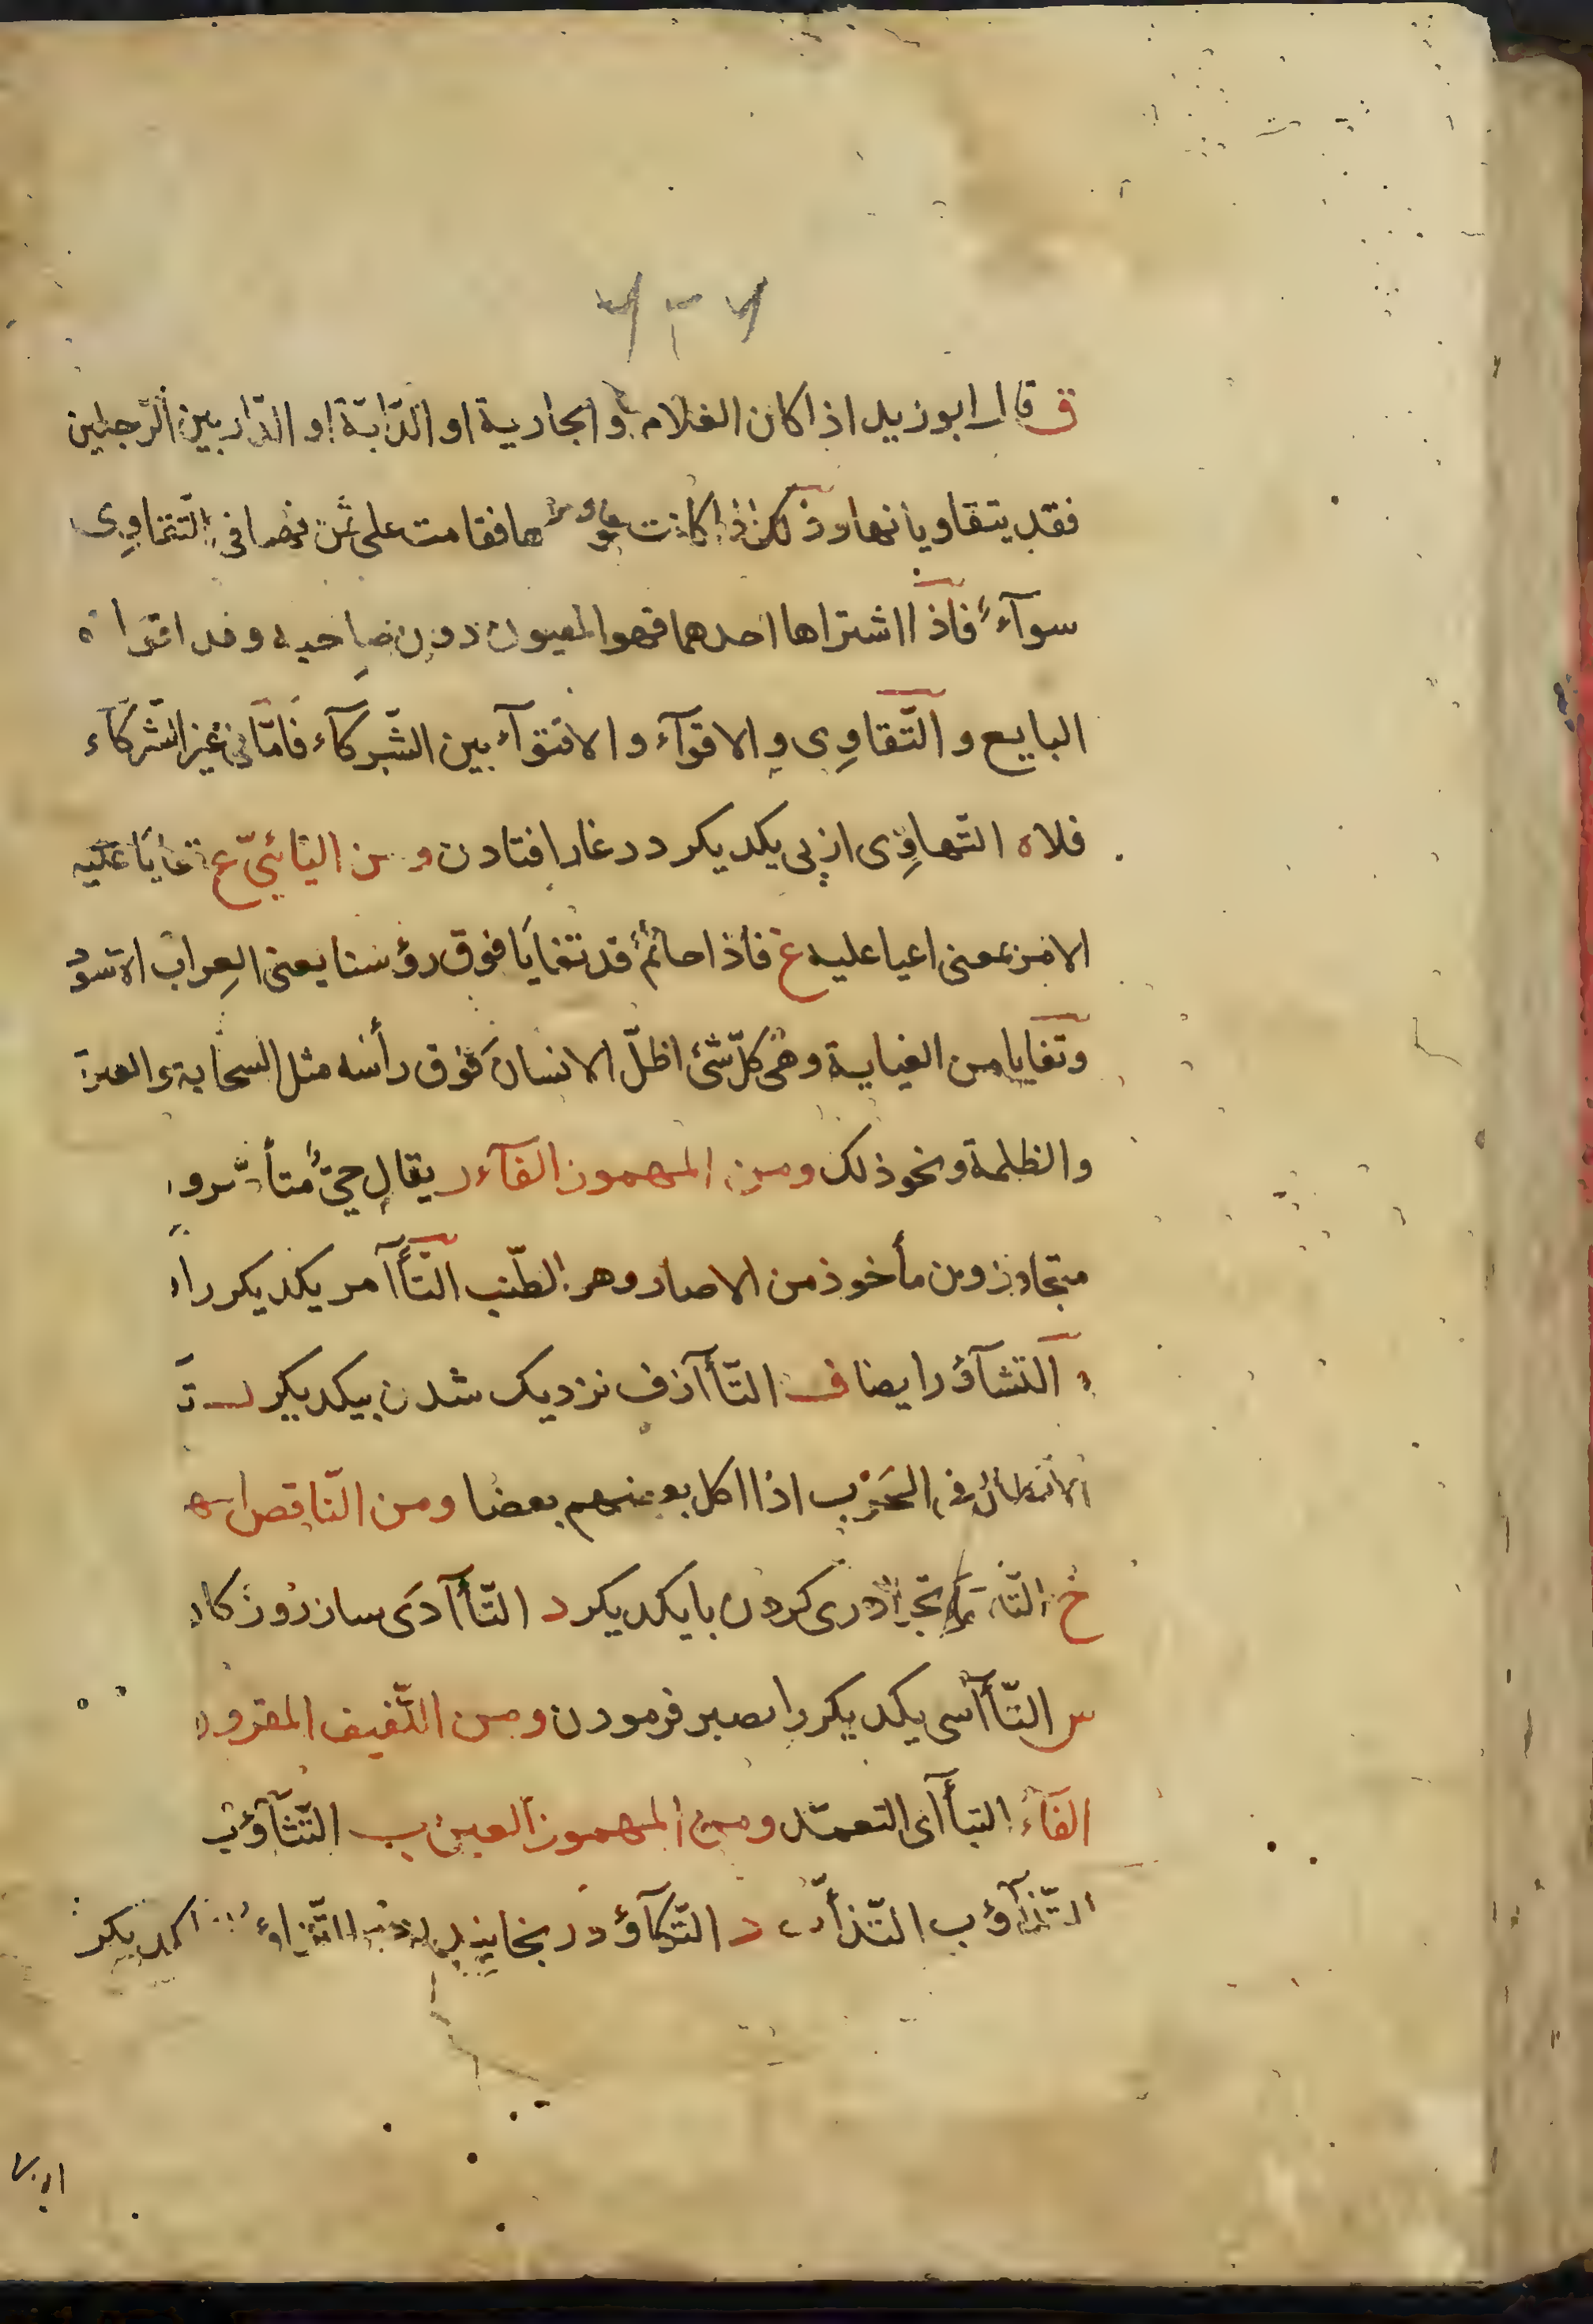 ٧٢٦
ق قال ابوزيد اذا كان الغلام او الجارية او الدّابّة او الدّار بين الرّجلين
فقد يتقاويانها وذلك اذا كانت فقامت على ثمن فهما فى التقاوى
سوآءٌ فاذا اشتراها احدهما فهو المغبون دون صاحبه وقد اقتواه
البايع والتّقاوِى والاقوآء والاقتوآء بين الشّركآء فامّا فى غير الشّركآء
فلا ه التّهاوِى از پى يكديكر در غار افتادن ومن اليائىّ ع تعايا عليه
الامر بمعنى اعيا عليه غ فاذا حائمٌ قد تغايا فوق رؤسنا يعنى
وتغايا من الغياية وهى كلّ شئ اظلّ الانسان فوق رأسه مثل السحابة والغبرة
والظلمة ونحو ذلك ومن المهموز الفآء ر يقال حىٌّ متأآصرون
متجاورون مأخوذ من الاصار وهو الطّنب التّأآمر يكديكر را
التّشآور ايضا ف التّأآزف نزديك شدن بيكديكر ل
الابطال فى الحَرْب اذا اكل بعضهم بعضا ومن النّاقص
خ كردن با يكديكر د التّأآدى ساز روزكار
س التّأآسى يكديكر را بصبر فرمودن ومن اللّفيف المقرون
الفآء التأآى التعمّد ومن المهموز العين ب التّثآؤب
التّذآؤب التّذأّب د التّكآؤد يكديكر